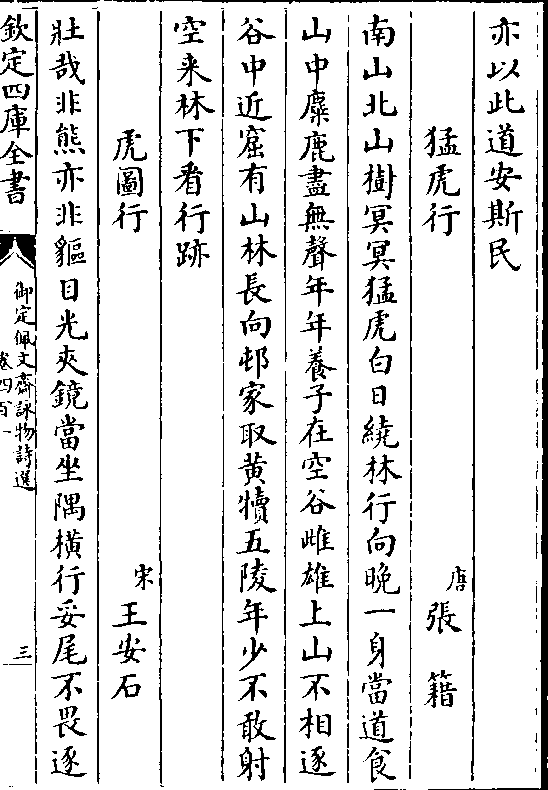 亦以此道安斯民
猛虎行 唐 張籍
南山北山樹冥冥猛虎白日繞林行向晚一身當道食
山中麋鹿盡無聲年年養子在空谷雌雄上山不相逐
谷中近窟有山林長向邨家取黄犢五陵年少不敢射
空来林下看行跡
虎圖行 宋 王安石
壯哉非熊亦非貙目光夾鏡當坐隅橫行妥尾不畏逐
欽定四庫全書
御定佩文齋詠物詩選
卷四百一
三